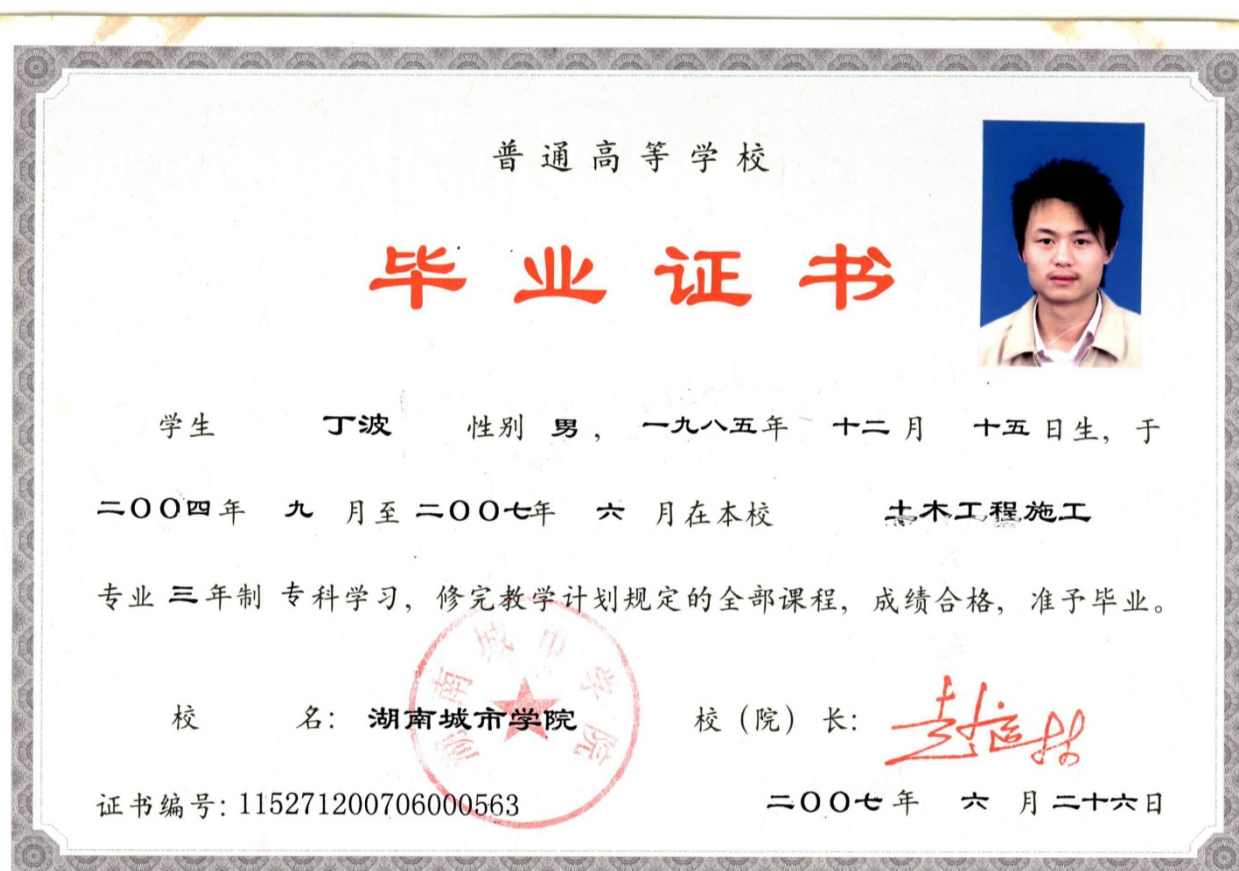 普通高等学校
毕业证书
学生 丁波 性别 男， 一九八五年 十二月 十五日生，于
二〇〇四年 九 月至 二〇〇七年 六 月在本校 土木工程施工
专业 三年制 专科学习，修完教学计划规定的全部课程，成绩合格，准予毕业。
湖南城市学院
校 名：湖南城市学院 校（院）长：彭运林
证书编号：115271200706000563 二〇〇七年 六 月二十六日